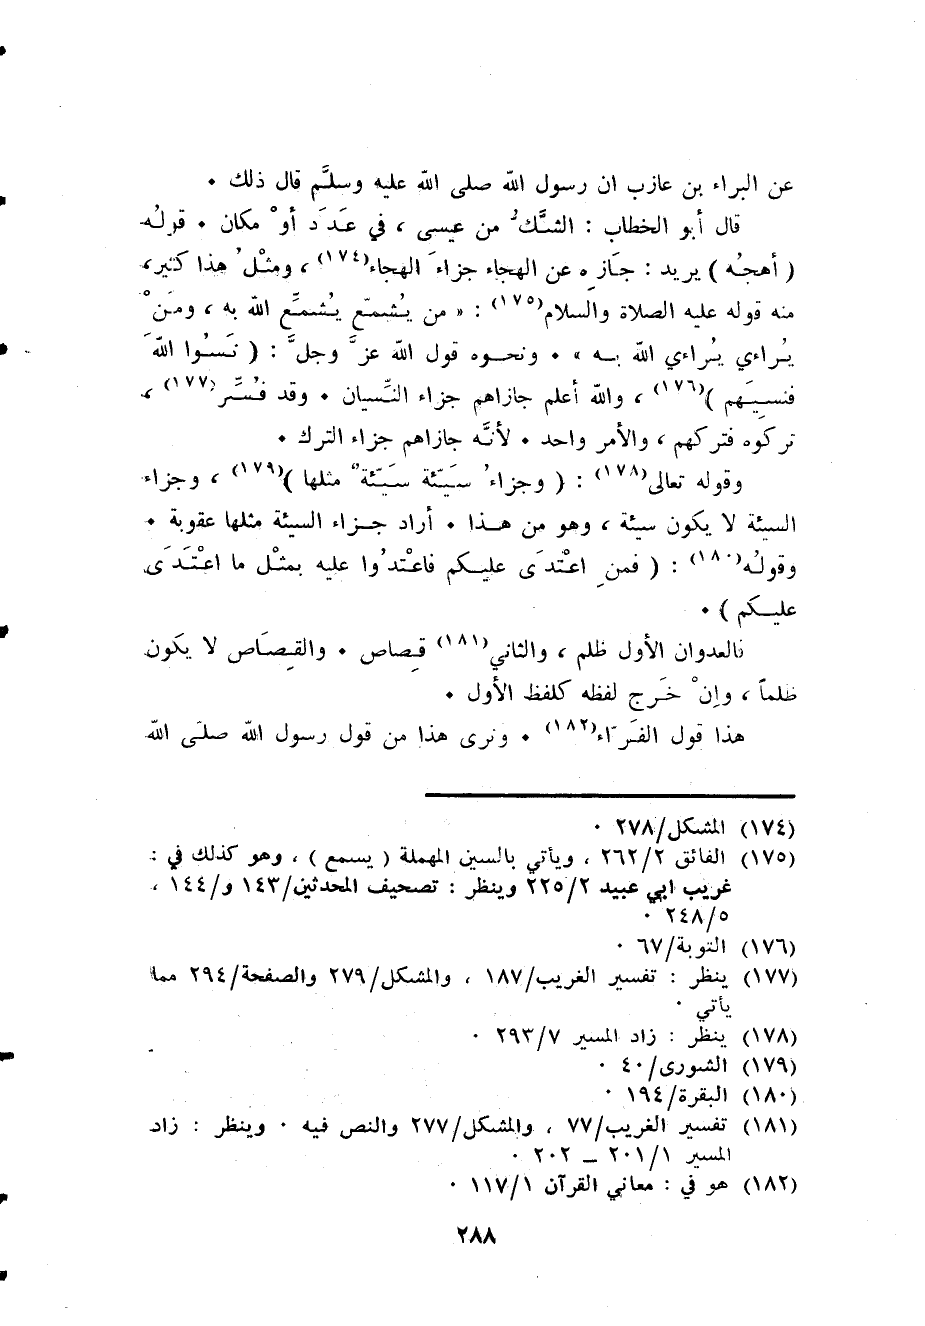 عن البراء بن عازب ان رسول الله صلى الله عليه وسلَّم قال ذلك ٠
قال أبو الخطاب : الشَّكُّ من عيسى ، في عَدَدَ أوْ مكان ٠ قولُه
( أهجُه ) يريد : جَازِ ه عن الهجاء جزاءَ الهجاء(١٧٤) ، ومثلُ هذا كثير ،
منه قوله عليه الصلاة والسلام(١٧٥) : « من يُشمّع يُشمَّع الله به ، ومَنْ
يُراءي يُراءي الله بـه » ٠ ونحـوه قول الله عزَّ وجلَّ : ( نَسُوا اللهَ
فنسِيَهم )(١٧٦) ، والله أعلم جازاهم جزاء النِّسيان ٠ وقد فُسَّر(١٧٧) ،
تركوه فتركهم ، والأمر واحد ٠ لأنَّه جازاهم جزاء الترك ٠
وقوله تعالى(١٧٨) : ( وجزاءُ سَيّئة سَيّئةٌ مثلها )(١٧٩) ، وجزاء
السيئة لا يكون سيئة ، وهو من هـذا ٠ أراد جـزاء السيئة مثلها عقوبة ٠
وقولُه(١٨٠) : ( فمنِ اعْتدَى عليـكم فاعْتدُوا عليه بمثْـل ما اعْتَـدَى
عليـكم ) ٠
فالعدوان الأول ظلم ، والثاني(١٨١) قِصاص ٠ والقِصَاص لا يكون
ظلماً ، وإنْ خَرج لفظه كلفظ الأول ٠
هذا قول الفَرّاء(١٨٢) ٠ ونرى هذا من قول رسول الله صلى الله
(١٧٤) المشكل/٢٧٨ ٠
(١٧٥) الفائق ٢٦٢/٢ ، ويأتي بالسين المهملة ( يسمع ) ، وهو كذلك في :
غريب ابي عبيد ٢٢٥/٢ وينظر : تصحيف المحدثين/١٤٣ و/١٤٤ ،
٢٤٨/٥ ٠
(١٧٦) التوبة/٦٧ ٠
(١٧٧) ينظر : تفسير الغريب/١٨٧ ، والمشكل/٢٧٩ والصفحة/٢٩٤ مما
يأتي ٠
(١٧٨) ينظر : زاد المسير ٢٩٣/٧ ٠
(١٧٩) الشورى/٤٠ ٠
(١٨٠) البقرة/١٩٤ ٠
(١٨١) تفسير الغريب/٧٧ ، والمشكل/٢٧٧ والنص فيه ٠ وينظر : زاد
المسير ٢٠١/١ ــ ٢٠٢ ٠
(١٨٢) هو في : معاني القرآن ١١٧/١ ٠
٢٨٨